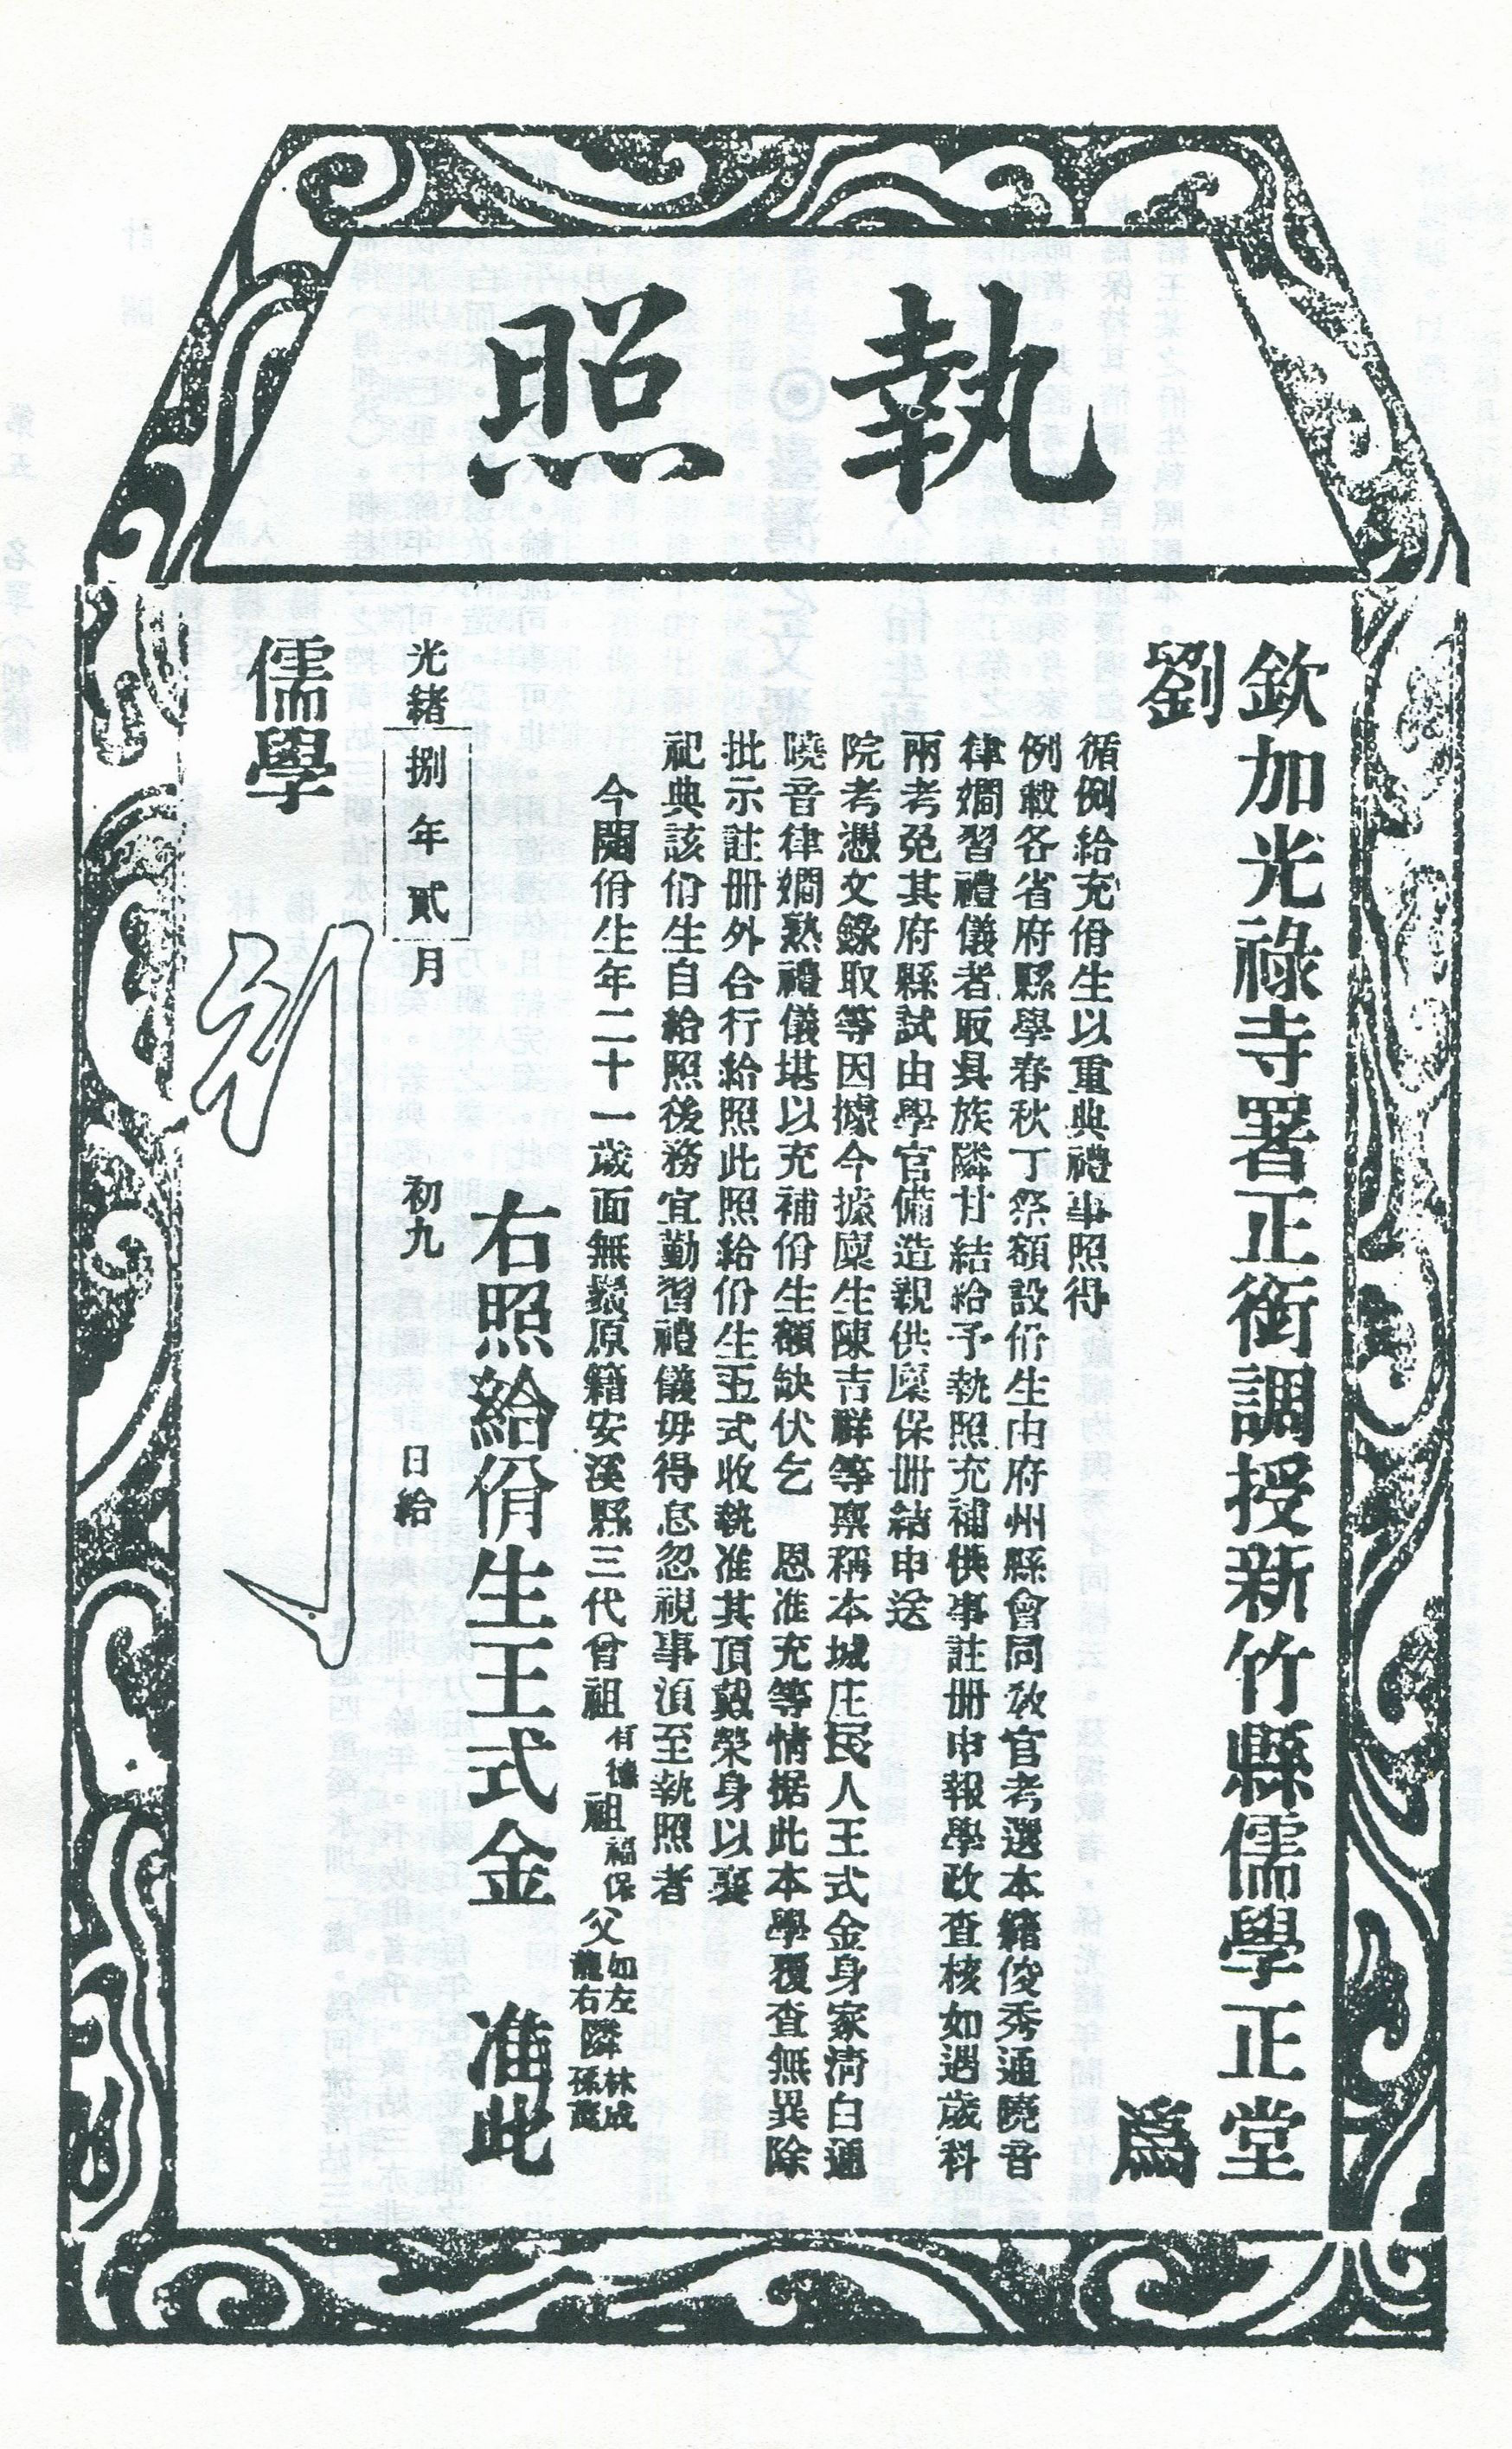 執照
欽加光祿寺署正銜調授新竹縣儒學正堂
劉　為
循例給充佾生以重典禮事照得
例載各省府縣學春秋丁祭額設佾生由府州縣會同教官考選本籍俊秀通曉音
律嫺習禮儀者取具族隣甘結給予執照充補供事註冊申報學政查核如遇歲科
兩考免其府縣試由學官備造親供廩保冊結申送
院考憑文錄取等因據今據廩生陳吉祥等禀稱本城庄民人王式金身家清白通
曉音律嫺熟禮儀堪以充補佾生額缺伏乞　恩准充等情据此本學覆查無異除
批示註冊外合行給照此照給佾生王式收執准其頂戴榮身以襄
祀典該佾生自給照後務宜勤習禮儀毋得怠忽視事湏至執照者
今開佾生年二十一歲面無鬚原籍安溪縣三代曾祖有德祖福保父如龍左右隣林成孫
右照給佾生王式金　准此
光緒捌年貳月初九日給
儒學